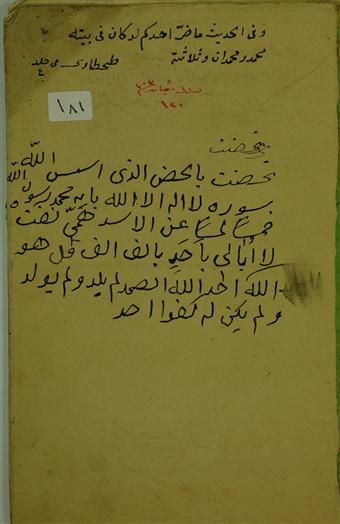 وفى الحديث ما ضرّ احدكم لو كان فى بيته
محمد ومحمدان وثلاثة
طحطاوى
١٨١
١٢٠
تحصنت
تحصنت بالحصن الذى اسس الله
بسوره لا اله الا الله بابه محمد رسول الله
عن الاسد
لا ابالى باحد بالف الف قل هو
الله احد الله الصمد لم يلد ولم يولد
ولم يكن له كفوا احد